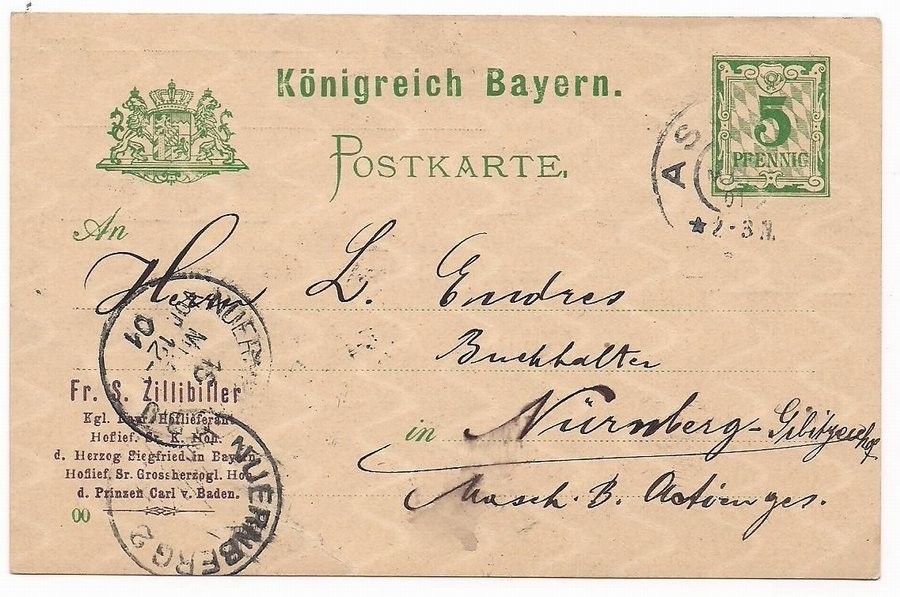 Königreich Bayern.
POSTKARTE.
5
PFENNIG
AS
01
*2-3 N.
An
Herrn L. Endres
Buchhalter
in Nürnberg-
Masch. B. Actienges.
NUER
01
25
Fr. S. Zillibiller
Kgl. Bayr. Hoflieferant
Hoflief. Sr. K. Hoh.
d. Herzog Siegfried in Bayern
Hoflief. Sr. Grossherzogl. Hoh.
d. Prinzen Carl v. Baden.
00
NUERNBERG 2